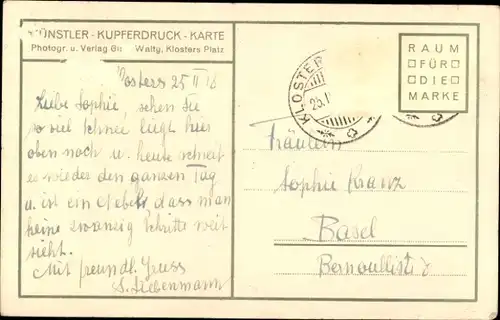 KÜNSTLER - KUPFERDRUCK - KARTE
Photogr. u. Verlag Walty, Klosters Platz
Klosters 25 II
Liebe Sophie, sehen Sie
so viel Schnee liegt hier
oben noch u. heute schneit
es wieder den ganzen Tag
u. ist ein Nebel dass man
keine zwanzig Schritte weit
sieht.
Mit freundl. Gruss
S. Liebermann
RAUM
FÜR
DIE
MARKE
KLOSTER
25.
Fräulein
Sophie Kranz
Basel
Bernoullistr